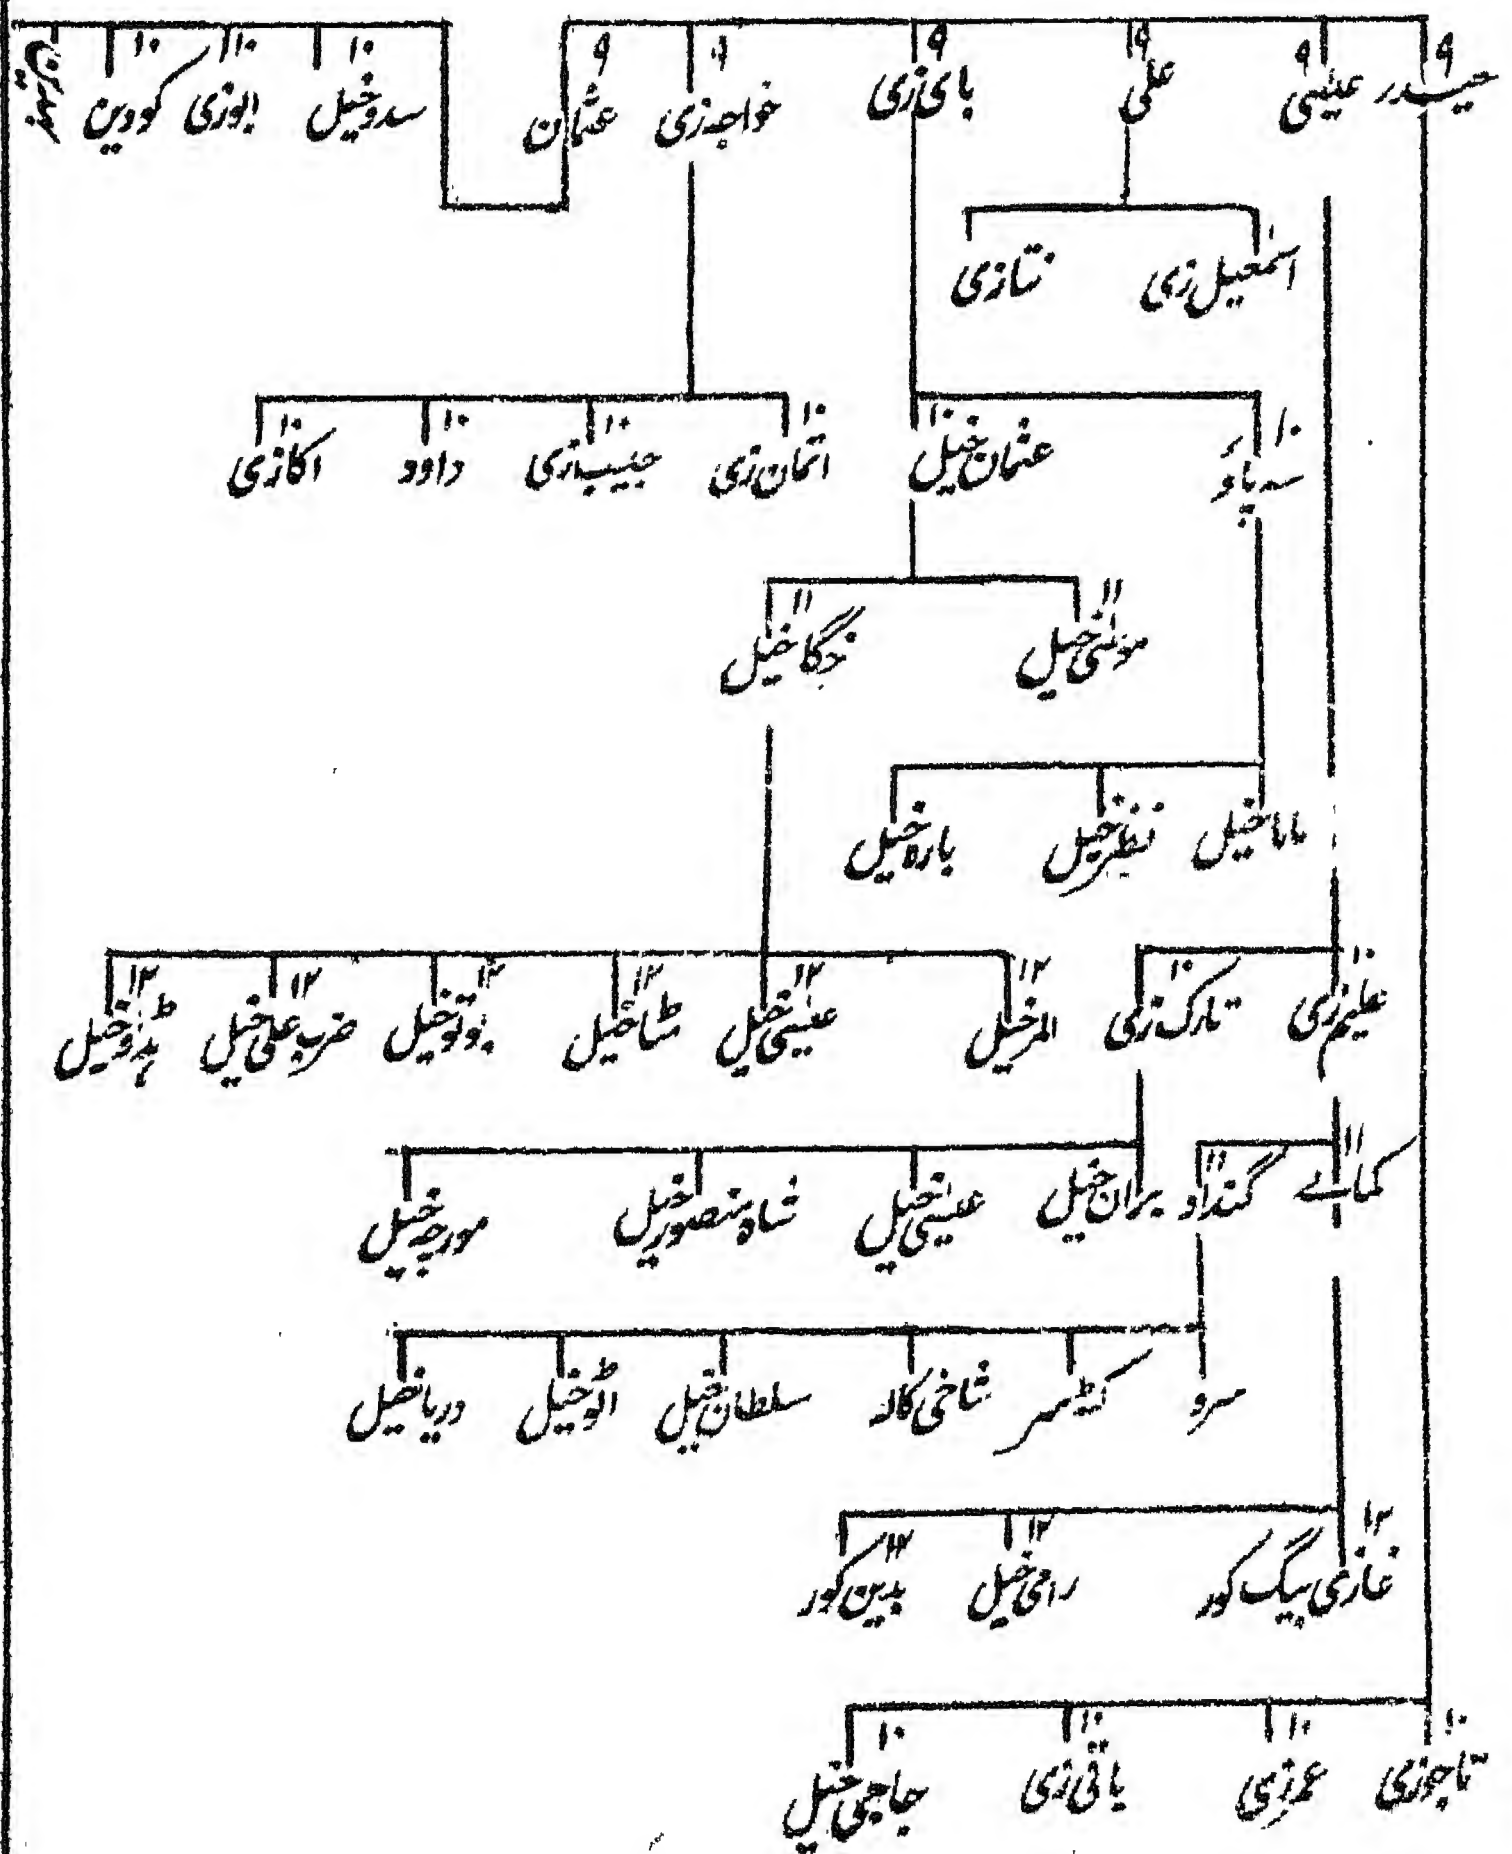 ۹ حیدر ۹ عیسیٰ ۹ علی ۹ بائی زی ۹ خواجہ زی ۹ عثمان ۱۰ سدوخیل ۱۰ ابوزی ۱۰ کودین
اسمٰعیل زی نتازی
۱۰ سہ پاؤ ۱۰ عثمان خیل ۱۰ اتمان زی ۱۰ حبیب زی ۱۰ داود ۱۰ اکازی
۱۱ موسٰی خیل ۱۱ خیل
ماما خیل نظر خیل بارہ خیل
۱۰ علیم زی ۱۰ تارک زی ۱۲ المر خیل ۱۲ عیسیٰ خیل ۱۲ شاخیل ۱۲ پوتو خیل ۱۲ ضرب علی خیل ۱۲ خیل
۱۱ کمالے ۱۱ گنداو بران خیل عیسیٰ خیل شاہ منصور خیل مورچہ خیل
سرو کٹ سر شاخی کالہ سلطان خیل اٹو خیل دریا خیل
۱۲ غازی بیگ کور ۱۲ رامی خیل ۱۲ بدین کور
۱۰ تاجوزی ۱۰ عمرزی ۱۰ باقی زی ۱۰ حاجی خیل